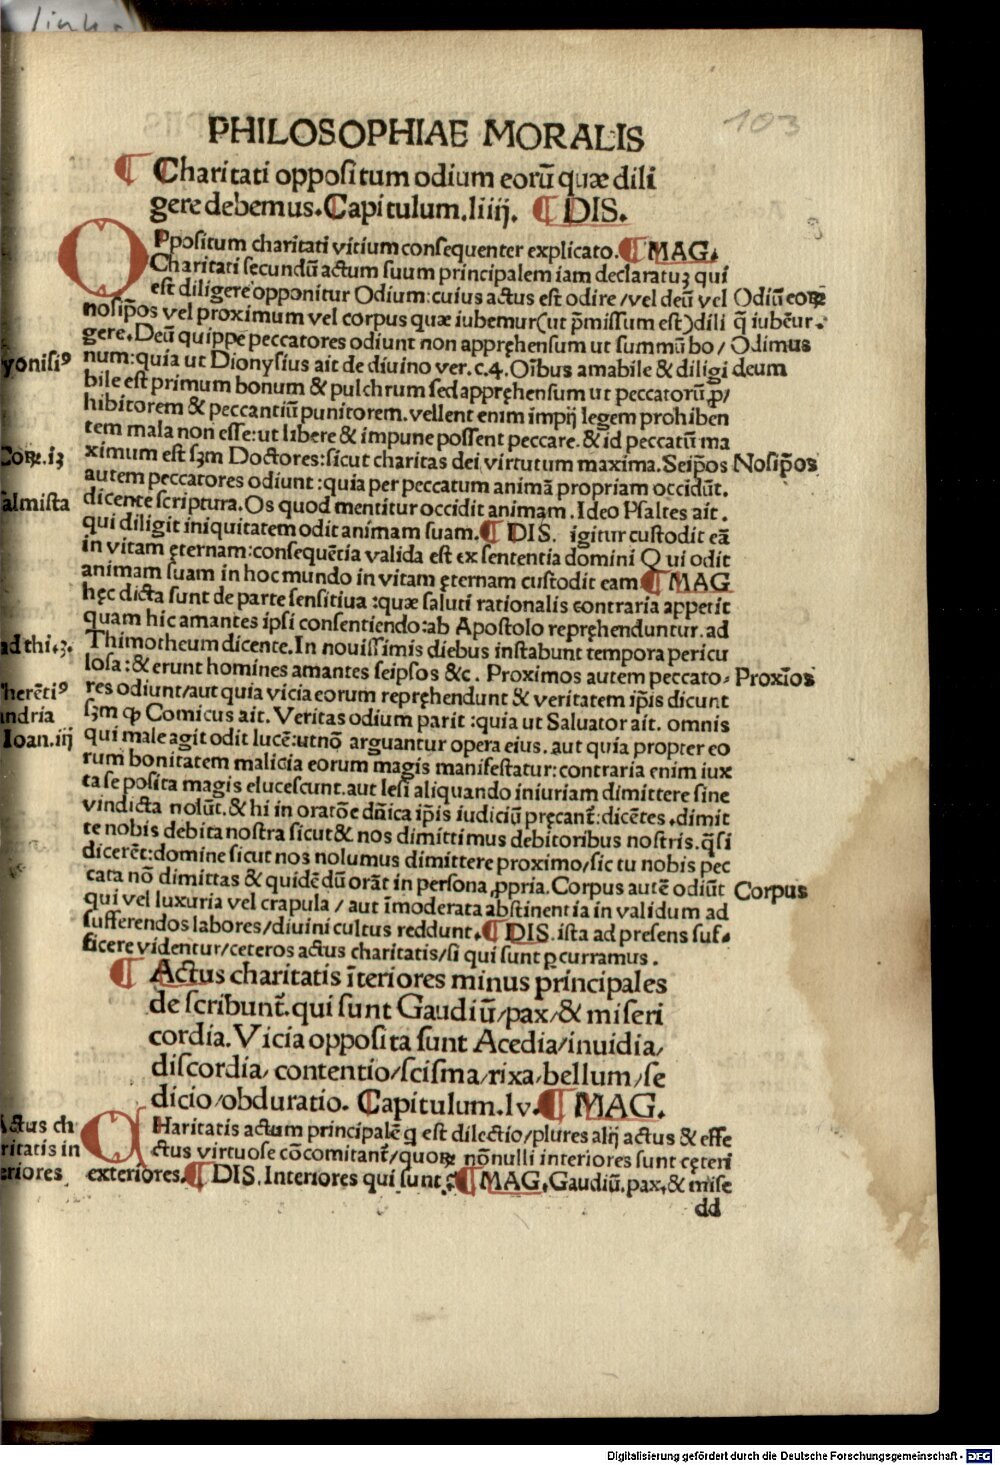 103
PHILOSOPHIAE MORALIS
¶ Charitati oppositum odium eorū quæ dili
gere debemus. Capitulum. liiij. ¶ DIS.
OPpositum charitati vitium consequenter explicato. ¶ MAG.
Charitati secundū actum suum principalem iam declaratuꝫ qui
est diligere opponitur Odium: cuius actus est odire/vel deū vel
nosip̄os vel proximum vel corpus quæ iubemur(ut p̄missum est)dili
gere. Deū quippe peccatores odiunt non appręhensum ut summū bo/
num: quia ut Dionysius ait de diuino ver. c. 4. Oībus amabile & diligi
bile est primum bonum & pulchrum sed appręhensum ut peccatorū ꝓ/
hibitorem & peccantiū punitorem. vellent enim impij legem prohiben
tem mala non esse: ut libere & impune possent peccare. & id peccatū ma
ximum est sꝫm Doctores: sicut charitas dei virtutum maxima. Seip̄os
autem peccatores odiunt: quia per peccatum animā propriam occidūt.
dicente scriptura. Os quod mentitur occidit animam. Ideo Psaltes ait.
qui diligit iniquitatem odit animam suam. ¶ DIS. igitur custodit eā
in vitam ęternam: consequētia valida est ex sententia domini Qui odit
animam suam in hoc mundo in vitam ęternam custodit eam ¶ MAG
hęc dicta sunt de parte sensitiua: quæ saluti rationalis contraria appetit
quam hic amantes ipsi consentiendo: ab Apostolo repręhenduntur. ad
Thimotheum dicente. In nouissimis diebus instabunt tempora pericu
losa: & erunt homines amantes seipsos &c. Proximos autem peccato/
res odiunt/aut quia vicia eorum repręhendunt & veritatem ip̄is dicunt
sꝫm ꝙ Comicus ait. Veritas odium parit: quia ut Saluator ait. omnis
qui male agit odit lucē: ut nō arguantur opera eius. aut quia propter eo
rum bonitatem malicia eorum magis manifestatur: contraria enim iux
ta se posita magis elucescunt. aut lesi aliquando iniuriam dimittere sine
vindicta nolūt. & hi in oratōe dn̄ica ip̄is iudiciū pręcant̄: dicētes. dimit
te nobis debita nostra sicut & nos dimittimus debitoribus nostris. q̄si
dicerēt: domine sicut nos nolumus dimittere proximo/sic tu nobis pec
cata nō dimittas & quidē dū orāt in persona ꝓpria. Corpus autē odiūt
qui vel luxuria vel crapula/aut īmoderata abstinentia in validum ad
sufferendos labores/diuini cultus reddunt. ¶ DIS. ista ad presens suf/
ficere videntur/ceteros actus charitatis/si qui sunt ꝑcurramus.
¶ Actus charitatis īteriores minus principales
describunt̄. qui sunt Gaudiū/pax/& miseri
cordia. Vicia opposita sunt Acedia/inuidia/
discordia/contentio/scisma/rixa/bellum/se
dicio/obduratio. Capitulum. lv. ¶ MAG.
CHaritatis actum principalē q est dilectio/plures alij actus & effe
ctus virtuose cōcomitant̄/quoꝝ nōnulli interiores sunt cęteri
exteriores. ¶ DIS. Interiores qui sunt? ¶ MAG. Gaudiū. pax. & mise
dd
Odiū eoꝝ
q̄ iubēur.
Odimus
deum
Nosip̄os
Proxīos
Corpus
yonisiꝰ
Coꝝ. iꝫ
almista
ad thi. 3.
herētiꝰ
andria
Ioan. iij
Actus ch
ritatis in
eriores
Digitalisierung gefördert durch die Deutsche Forschungsgemeinschaft - DFG